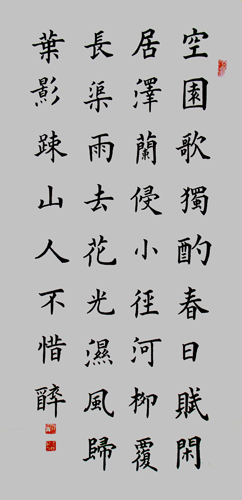 空園歌獨酌春日賦閑
居澤蘭侵小徑河柳覆
長渠雨去花光濕風歸
葉影踈山人不惜醉